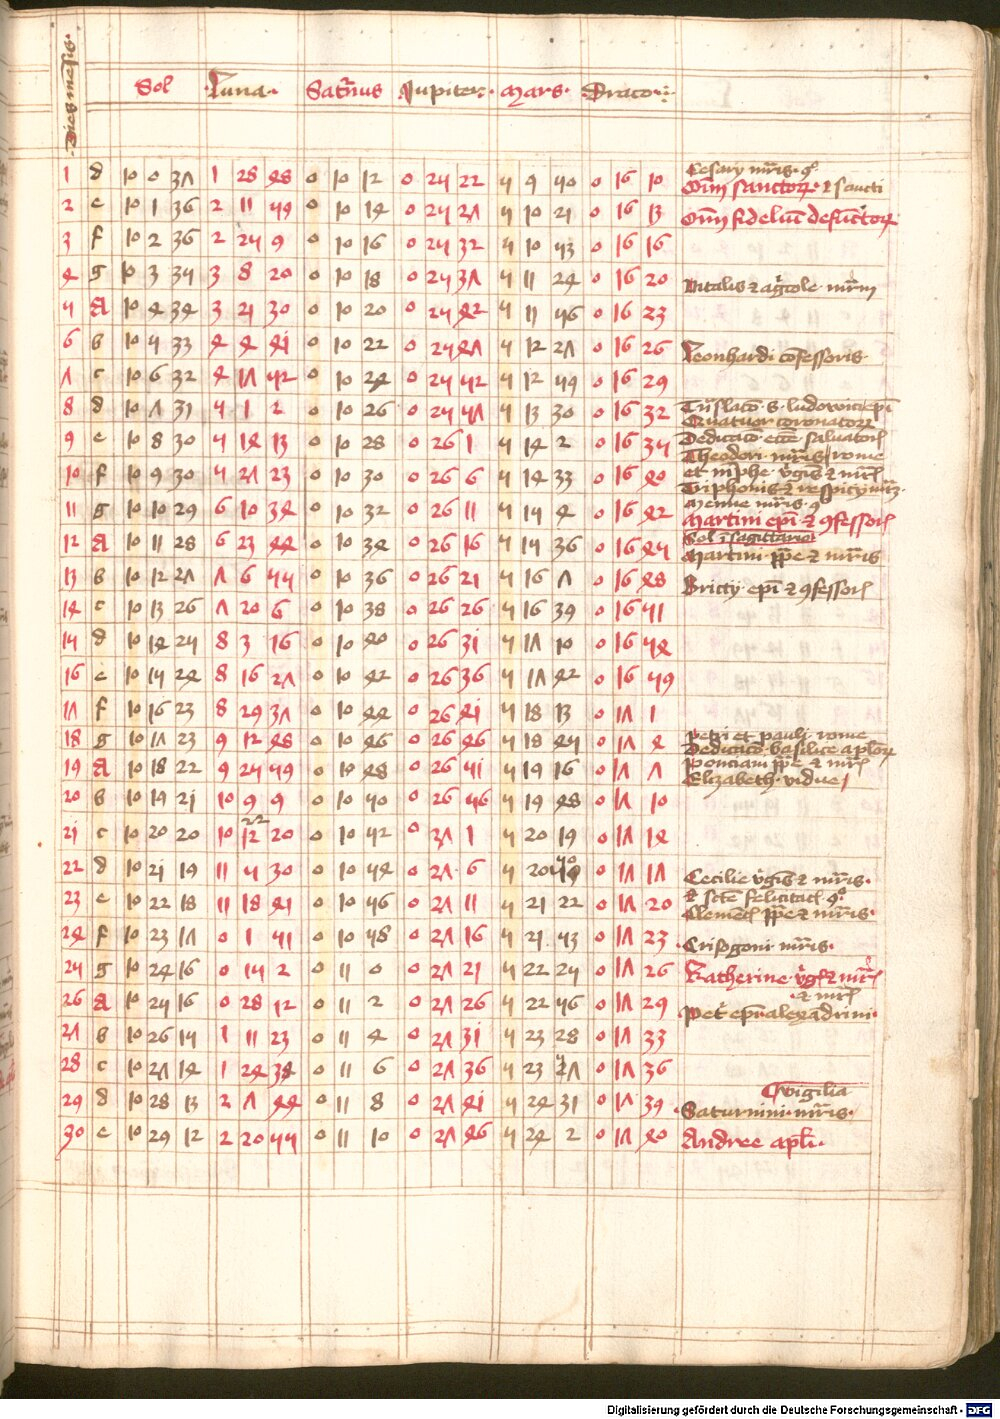 Dies mensis
Sol Luna Saturnus Jupiter Mars Draco
1 d 10 0 37 1 28 48 0 10 12 0 25 22 5 9 50 0 16 10 Cesary mris qͥ
Oim sanctorꝝ ⁊ sancti
2 e 10 1 36 2 11 59 0 10 14 0 25 27 5 10 21 0 16 13 Oim fideliu defuctorꝝ
3 f 10 2 36 2 25 9 0 10 16 0 25 32 5 10 53 0 16 16
4 g 10 3 35 3 8 20 0 10 18 0 25 37 5 11 24 0 16 20 Vitalis ⁊ agcole mrm
5 A 10 4 34 3 21 30 0 10 20 0 25 42 5 11 56 0 16 23
6 b 10 5 33 4 4 41 0 10 22 0 25 47 5 12 27 0 16 26 Leonhardi cofessoris
7 c 10 6 32 4 17 52 0 10 24 0 25 52 5 12 59 0 16 29
8 d 10 7 31 5 1 2 0 10 26 0 25 57 5 13 30 0 16 32 Tnslaco S ludowici epi
Quatuor coronatorꝝ
9 e 10 8 30 5 14 13 0 10 28 0 26 1 5 14 2 0 16 35 Dedicaco ecce saluatoris
Theodori mris rome
10 f 10 9 30 5 27 23 0 10 30 0 26 6 5 14 33 0 16 40 et niphe vgis ⁊ mris
Triphonis ⁊ respicy mrꝝ
11 g 10 10 29 6 10 34 0 10 32 0 26 11 5 15 4 0 16 42 Menne mris qͥ
Martini epi ⁊ ꝯfessoris
12 A 10 11 28 6 23 44 0 10 34 0 26 16 5 15 36 0 16 45 Sol i sagittario
Martini ppe ⁊ mris
13 b 10 12 27 7 6 55 0 10 36 0 26 21 5 16 7 0 16 48 Briccy epi ⁊ ꝯfessoris
14 c 10 13 26 7 20 6 0 10 38 0 26 26 5 16 39 0 16 51
15 d 10 14 25 8 3 16 0 10 40 0 26 31 5 17 10 0 16 54
16 e 10 15 24 8 16 27 0 10 42 0 26 36 5 17 42 0 16 59
17 f 10 16 23 8 29 37 0 10 44 0 26 41 5 18 13 0 17 1
18 g 10 17 23 9 12 48 0 10 46 0 26 46 5 18 45 0 17 4 Petri et pauli rome
Dedicaco basilice aplorꝝ
19 A 10 18 22 9 25 59 0 10 48 0 26 51 5 19 16 0 17 7 Ponciani ppe ⁊ mris
Elizabeth vidue
20 b 10 19 21 10 9 9 0 10 50 0 26 56 5 19 48 0 17 10
21 c 10 20 20 10 22 20 0 10 52 0 27 1 5 20 19 0 17 14
22 d 10 21 19 11 5 30 0 10 54 0 27 6 5 20 50 0 17 17 Cecilie vgis ⁊ mris
23 e 10 22 18 11 18 41 0 10 56 0 27 11 5 21 22 0 17 20 ⁊ scte felicitatis qͦ
Clemetis ppe ⁊ mris
24 f 10 23 17 0 1 51 0 10 58 0 27 16 5 21 53 0 17 23 Crisogoni mris
25 g 10 24 16 0 15 2 0 11 0 0 27 21 5 22 25 0 17 26 Katherine vgis ⁊ mris
26 A 10 25 16 0 28 12 0 11 2 0 27 26 5 22 56 0 17 29 ⁊ mris
Pet epi alexadrini
27 b 10 26 15 1 11 23 0 11 4 0 27 31 5 23 28 0 17 33
28 c 10 27 14 1 24 34 0 11 6 0 27 36 5 23 57 0 17 36
29 d 10 28 13 2 7 44 0 11 8 0 27 41 5 24 31 0 17 39 Vigilia
Saturnini mris
30 e 10 29 12 2 20 55 0 11 10 0 27 46 5 24 2 0 17 40 Andree apli
Digitalisierung gefördert durch die Deutsche Forschungsgemeinschaft - DFG